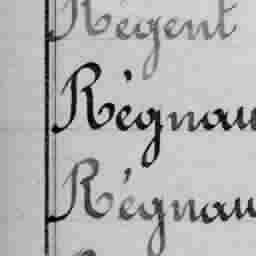 Régent
Régnau
Régnau